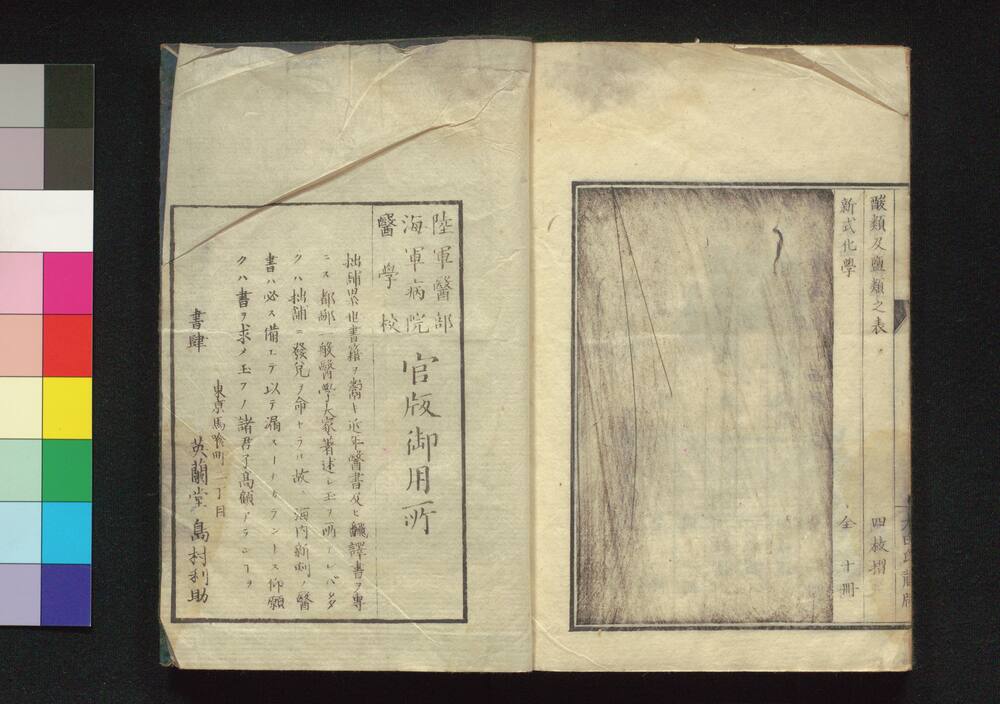 酸類及鹽類之表 四枚摺
新式化學 全十冊
陸軍醫部
海軍病院
醫學校
官版御用所
拙舖累世書籍ヲ鬻キ近年醫書及ヒ飜譯書ヲ專
ニス都鄙一般醫學大家著述シ玉フ所ノ
クハ拙舖ニ發兌ヲ命セラル故ニ海内新刻ノ醫
書ハ必ス備エテ以テ漏スーナカラントス仰願
クハ書ヲ求メ玉フノ諸君子高顧アランーヲ
東京馬喰町二丁目
書肆 英蘭堂島村利助